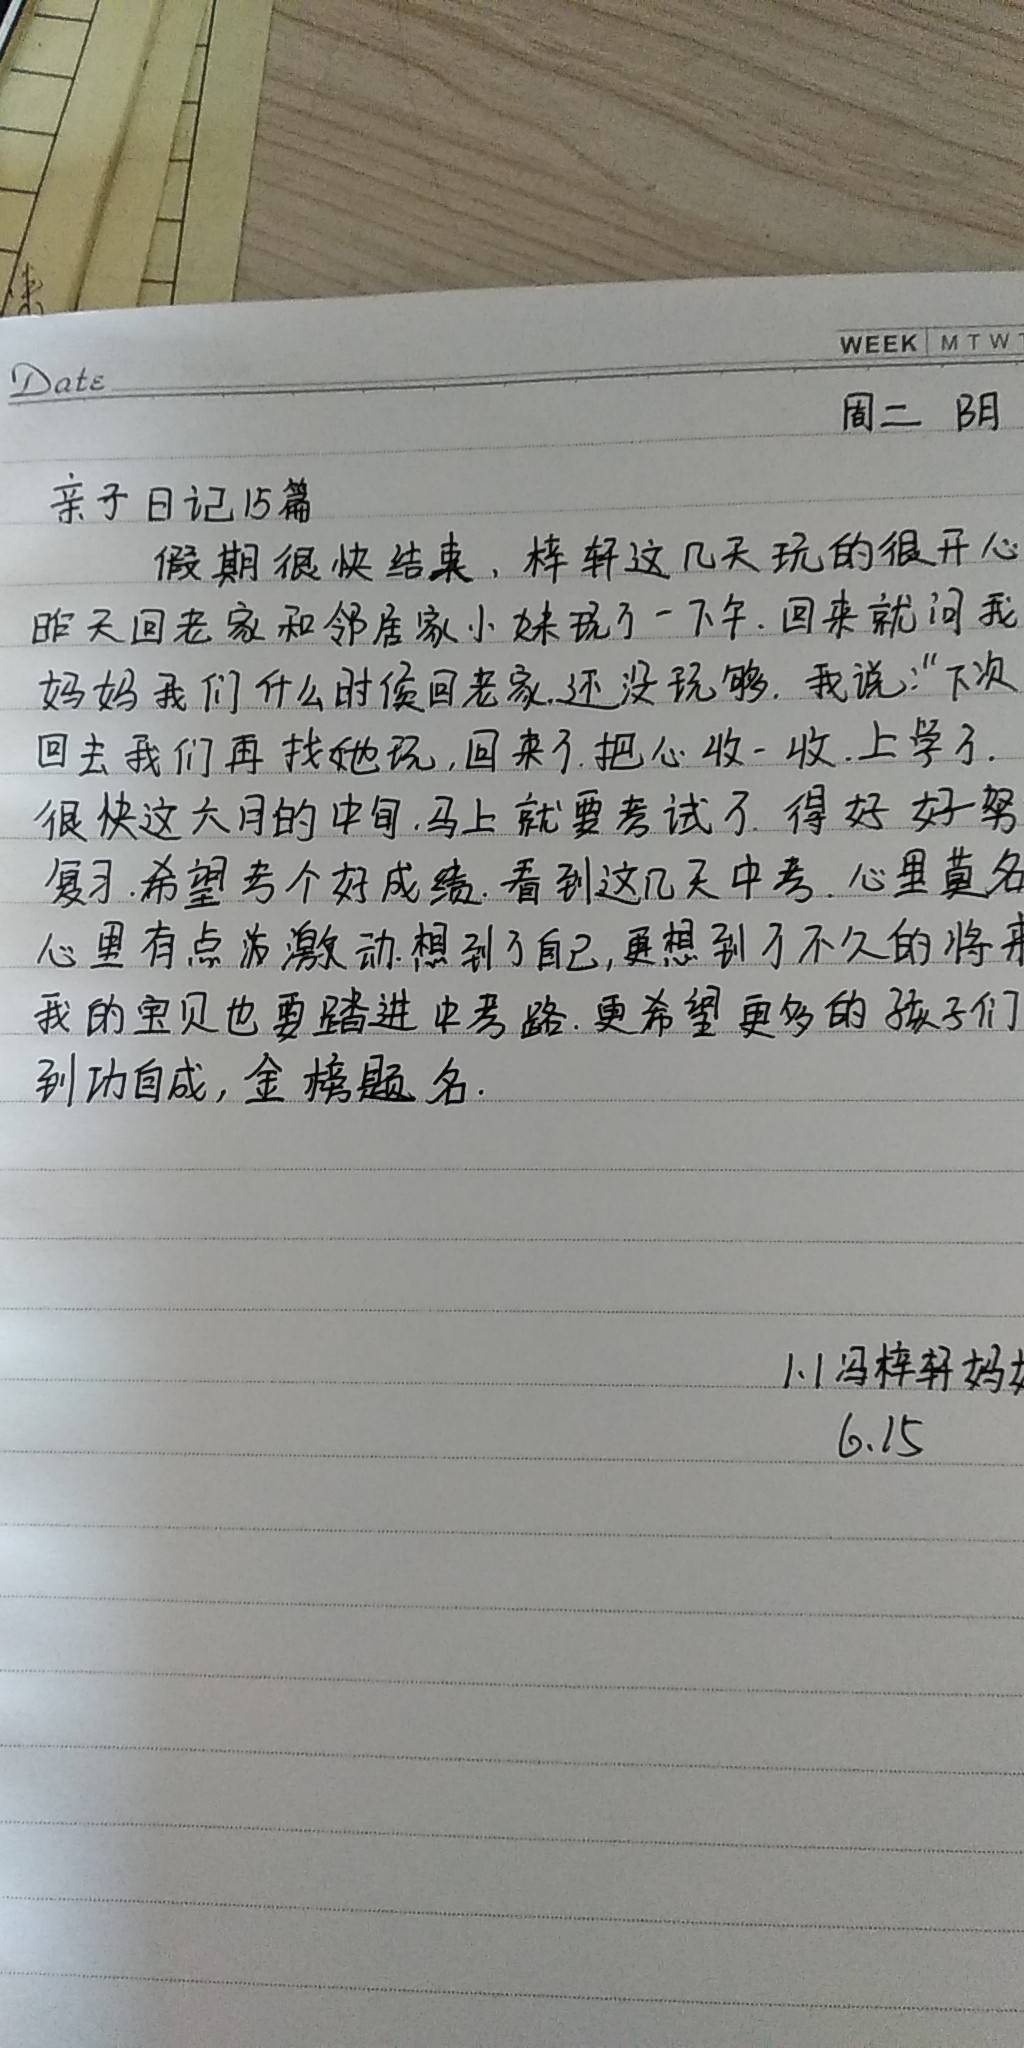 WEEK M T W
Date
周二 阴
亲子日记15篇
假期很快结束、梓轩这几天玩的很开心
昨天回老家和邻居家小妹玩了一下午.回来就问我
妈妈我们什么时候回老家.还没玩够.我说:“下次
回去我们再找她玩,回来了.把心收一收.上学了.
很快这六月的中旬.马上就要考试了.得好好努
复习.希望考个好成绩.看到这几天中考.心里莫名
心里有点激动.想到了自己,更想到了不久的将来
我的宝贝也要踏进中考路.更希望更多的孩子们
到功自成,金榜题名.
1.1冯梓轩妈妈
6.15